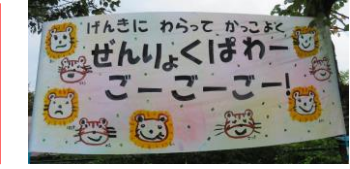 げんきに わらって かっこよく
ぜんりょくぱわー
ごーごーごー！